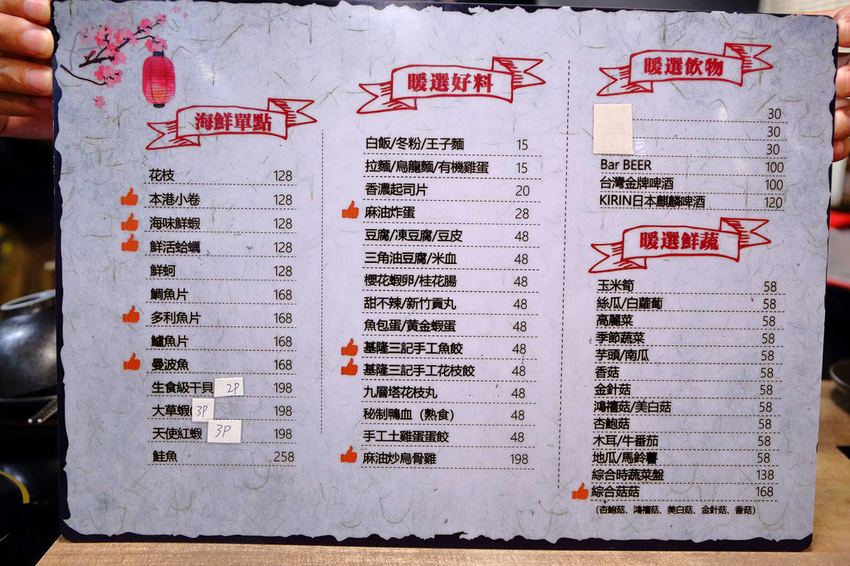 海鮮單點
花枝 128
本港小卷 128
海味鮮蝦 128
鮮活蛤蠣 128
鮮蚵 128
鯛魚片 168
多利魚片 168
鱸魚片 168
曼波魚 168
生食級干貝 2P 198
大草蝦 3P 198
天使紅蝦 3P 198
鮭魚 258
暖選好料
白飯/冬粉/王子麵 15
拉麵/烏龍麵/有機雞蛋 15
香濃起司片 20
麻油炸蛋 28
豆腐/凍豆腐/豆皮 48
三角油豆腐/米血 48
櫻花蝦卵/桂花腸 48
甜不辣/新竹貢丸 48
魚包蛋/黃金蝦蛋 48
基隆三記手工魚餃 48
基隆三記手工花枝餃 48
九層塔花枝丸 48
秘制鴨血（熟食） 48
手工土雞蛋蛋餃 48
麻油炒烏骨雞 198
暖選飲物
30
30
30
Bar BEER 100
台灣金牌啤酒 100
KIRIN日本麒麟啤酒 120
暖選鮮蔬
玉米筍 58
絲瓜/白蘿蔔 58
高麗菜 58
季節蔬菜 58
芋頭/南瓜 58
香菇 58
金針菇 58
鴻禧菇/美白菇 58
杏鮑菇 58
木耳/牛番茄 58
地瓜/馬鈴薯 58
綜合時蔬菜盤 138
綜合菇菇 168
（杏鮑菇、鴻禧菇、美白菇、金針菇、香菇）